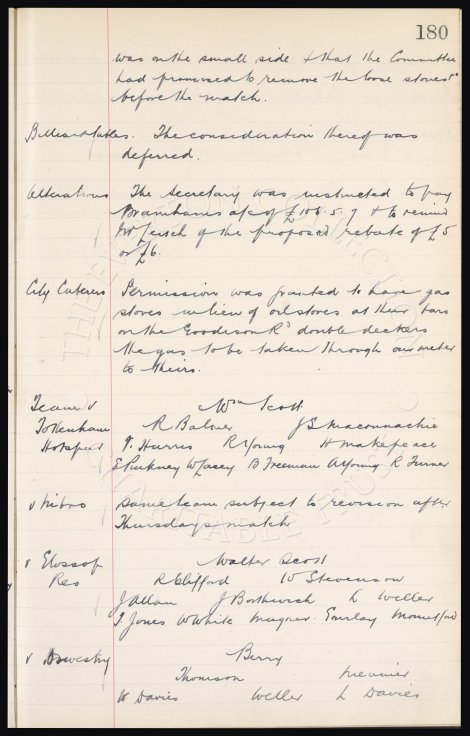 180
was on the small side & that the Committee
had promised to remove the loose stones
before the match.
Billiard tables. The consideration thereof was
deferred.
Alterations The Secretary was instructed to pay
Bramhams a/c of £106.5.7 & to remind
Mr of the proposed rebate of £5
or £6.
City Caterers Permission was granted to have gas
stoves in lieu of oil stoves at their bars
on the Goodison Rd double deckers
the gas to be taken through our meter
to theirs.
Team v Wm Scott
Tottenham R Balmer J S Maconnachie
Hotspur V. Harris R Young H Makepeace
E Pinkney W Lacey B Freeman A Young R Turner
v Hibs same team subject to revision after
Thursday's match
v Glossop Walter Scott
Res R Clifford W Stevenson
J Allan J Borthwick L Weller
T Jones W White Magner Gourlay Mountford
v Oswestry Berry
Thomson Meunier
W Davies Weller L Davies